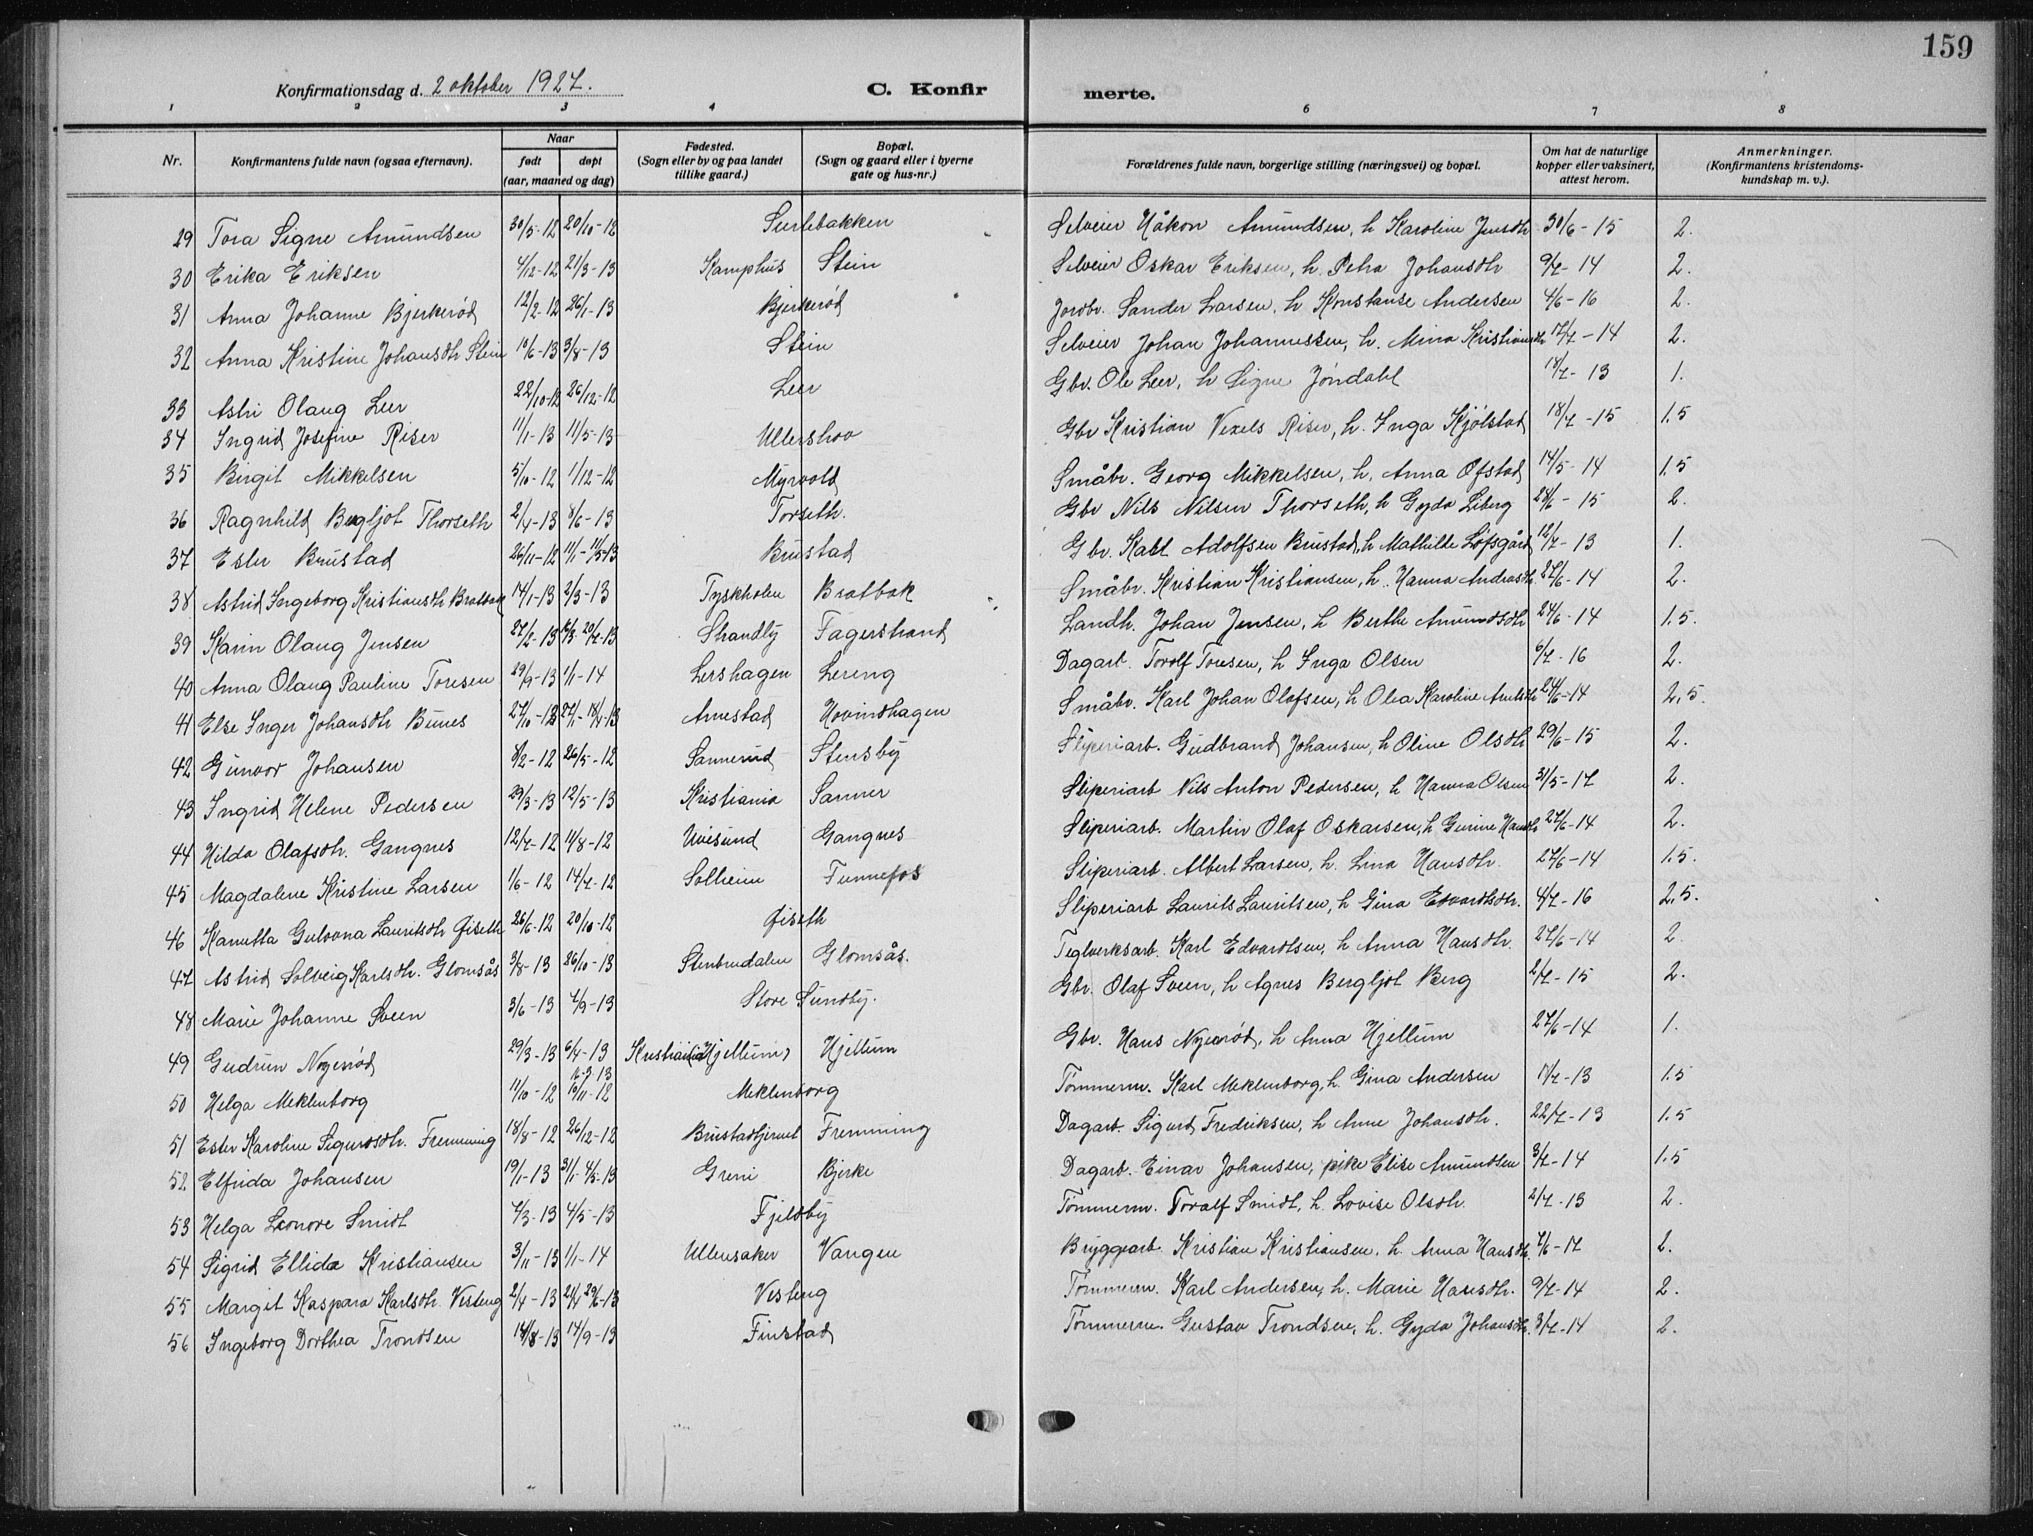 159
Konfirmationsdag d. 2 oktober 1927.
C. Konfirmerte.
1 2 3 4 6 7 8
Nr.
Konfirmantens fulde navn (ogsaa efternavn).
Naar
født døpt
(aar, maaned og dag)
Fødested.
(Sogn eller by og paa landet
tillike gaard.)
Bopæl.
(Sogn og gaard eller i byerne
gate og hus-nr.)
Forældrenes fulde navn, borgerlige stilling (næringsvei) og bopæl.
Om hat de naturlige
kopper eller vaksinert,
attest herom.
Anmerkninger.
(Konfirmantens kristendoms-
kundskap m. v.).
29 Tora Signe Amundsen 30/5-12 20/10-12 Selveier Håkon Amundsen, h Karoline Jensdtr 30/6-15 2.
30 Erika Eriksen 4/12-12 21/3-13 Kamphus Stein Selveier Oskar Eriksen, h. Petra Johansdtr 9/7-14 2.
31 Anna Johanne Bjerkerød 12/2-12 26/1-13 Bjerkerød Jordbr. Sander Larsen, h Konstanse Andersen 4/6-16 2.
32 Anna Kristine Johansdtr Stein 10/6-13 3/8-13 Stein Selveier Johan Johannessen, h. Mina Kristiansdtr 17/7-14 2.
33 Astri Olaug Leer 22/10-12 26/12-12 Leer Gbr. Ole Leer, h Signe Jøndahl 18/7-13 1.
34 Ingrid Josefine Riser 11/1-13 11/5-13 Ullershov Gbr Kristian Vexels Riser, h. Inga Kjølstad 18/7-15 1.5
35 Birgit Mikkelsen 5/10-12 1/12-12 Myrvold Småbr. Georg Mikkelsen, h. Anna Ofstad 14/5-14 1.5
36 Ragnhild Bergljot Thorseth 2/4-13 8/6-13 Torseth. Gbr Nils Nilsen Thorseth, h Gyda Liberg 28/6-15 2.
37 Ester Brustad 26/11-12 11/1-11/5-13 Brustad Gbr. Karl Adolfsen Brustad, h Mathilde Løfsgård 12/7-13 1.
38 Astrid Ingeborg Kristiansdtr Bratbak 14/1-13 2/3-13 Tyskholen Bratbak Småbr. Kristian Kristiansen, h. Hanna Andrasdtr. 27/6-14 2.
39 Karin Olaug Jensen 27/2-13 16/3 20/7-13 Strandly Fagerstrand Landh. Johan Jensen, h Berthe Amundsdtr 24/6-14 1.5.
40 Anna Olaug Pauline Toresen 29/9-13 1/1-14 Lershagen Lereng Dagarb. Torolf Toresen, h Inga Olsen 6/7-16 2.
41 Else Inger Johansdtr Bunes 27/10-12 Arnestad Hovindhagen Småbr. Karl Johan Olafsen, h Olea Karoline 24/6-14 2,5.
42 Gunvor Johansen 8/2-12 26/5-12 Sannerud Stensby Sliperiarb. Gudbrand Johansen, h Oline Olsdtr 29/6-15 2.
43 Ingrid Helene Pedersen 29/3-13 12/5-13 Kristiania Sanner Sliperiarb Nils Anton Pedersen, h Hanna Olsen 31/5-17 2.
44 Hilda Olafsdtr. Gangnes 12/7-12 11/8-12 Uvisund Gangnes Sliperiarb. Martin Olaf Oskarsen, h Gurine Hansdtr 27/6-14 2.
45 Magdalene Kristine Larsen 1/6-12 14/7-12 Solheim Funnefos Sliperiarb. Albert Larsen, h. Lina Hansdtr. 27/6-14 1.5.
46 Kanutta Gulvona Lauritsdtr Øiseth 26/6-12 20/10-12 Øiseth Sliperiarb Laurits Lauritsen, h Gina Edvardsdtr. 4/7-16 2,5.
47 Astrid Solveig Karlsdtr. Glomsås 3/8-13 26/10-13 Stenbrudalen Glomsås. Teglverksarb. Karl Edvardsen, h Anna Hansdtr. 27/6-14 2.
48 Marie Johanne Sveen 3/6-13 7/9-13 Store Sundby. Gbr Olaf Sveen, h Agnes Bergljot Berg 2/7-15 2.
49 Gudrun Nyerød 29/3-13 6/4-13 Kristiania (Hjellum) Hjellum Gbr. Hans Nyerød, h Anna Hjellum 27/6-14 1.
50 Helga Meklenborg 11/10-12 10/11-12 Meklenborg Tømmerm. Karl Meklenborg, h. Gina Andersen 11/7-13 1.5
51 Ester Karoline Sigurdsdtr. Fremming 18/8-12 26/12-12 Brustadtjernet Fremming Dagarb. Sigurd Fredriksen, h Anne Johansdtr. 22/7-13 1.5
52 Elfrida Johansen 19/1-13 31/1-4/5-13 Greni Bjerke Dagarb. Einar Johansen, pike Elise Amundsen 3/7-14 1.5
53 Helga Leonore Smidt 7/3-13 4/5-13 Fjeldby Tømmerm. Toralf Smidt, h. Lovise Olsdtr. 2/7-13 2.
54 Sigrid Ellida Kristiansen 3/11-13 1/1-14 Ullensaker Vangen Bryggearb. Kristian Kristiansen, h. Anna Hansdtr. 7/6-17 2.
55 Margit Kaspara Karlsdtr. Vesteng 2/4-13 Vesteng Tømmerm. Karl Andersen, h. Marie Hansdtr. 9/7-14 2.
56 Ingeborg Dorthea Trondsen 14/8-13 14/9-13 Finstad Tømmerm. Gustav Trondsen, h. Gyda Johansdtr. 3/7-14 2.